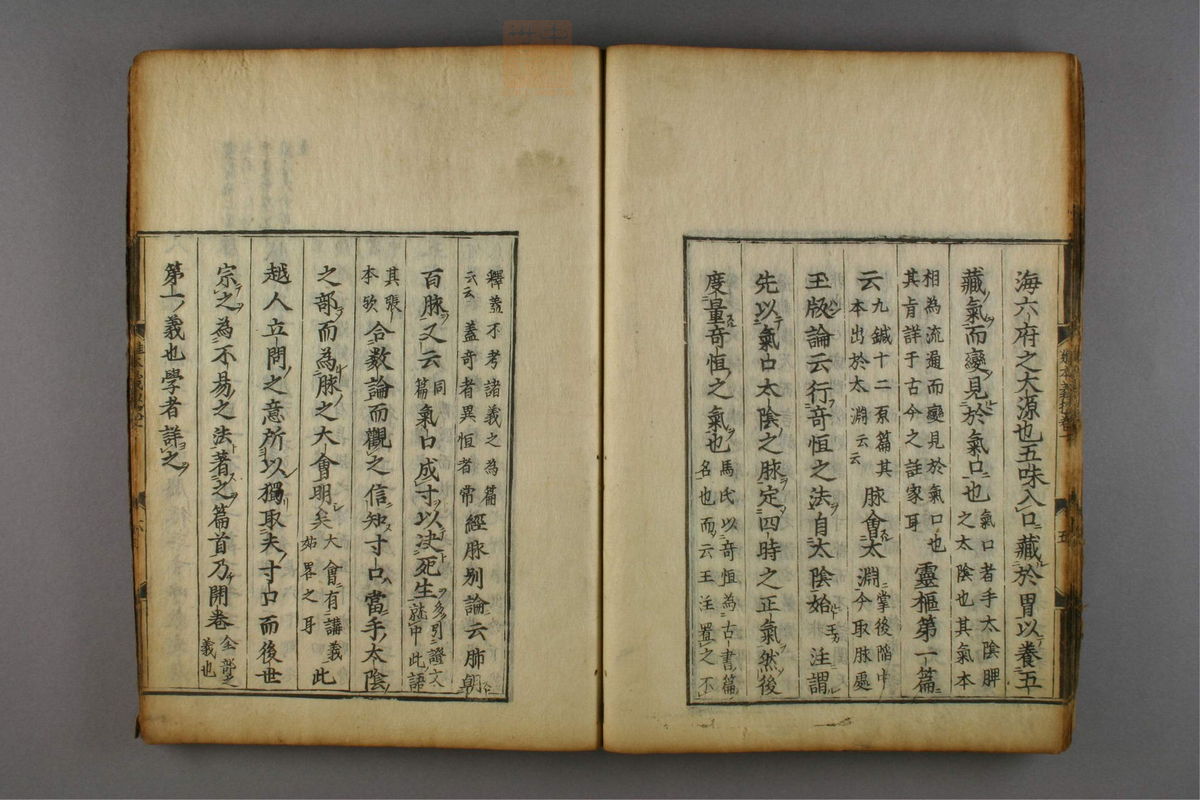 海六府之大源也五味入口藏於胃以養五
藏氣而變見於氣口也氣口者手太陰脾
之太陰也其氣本
相為流通而變見於氣口也
其肯詳于古今之註家耳靈樞第一篇
云九鍼十二原篇其
本出於太淵云云脉會太淵掌後陥中
今取脉處
玉版論云行奇恒之法自太陰始王注謂
先以氣口太陰之脉定四時之正氣然後
度量奇恒之氣也馬氏以奇恒為古書篇
名也而云王注置之不
釋蓋不考諸義之為篇
云云蓋奇者異恒者常經脉別論云肺朝
百脉又云同篇氣口成寸以决死生多引證文
就中此語
其張
本欤合数論而觀之信知寸口當手太陰
之部而為脉之大會明矣大會有講義
玆畧之耳此
越人立問之意所以獨取夫寸口而後世
宗之為不易之法著之篇首乃開卷
義也
第一義也學者詳之